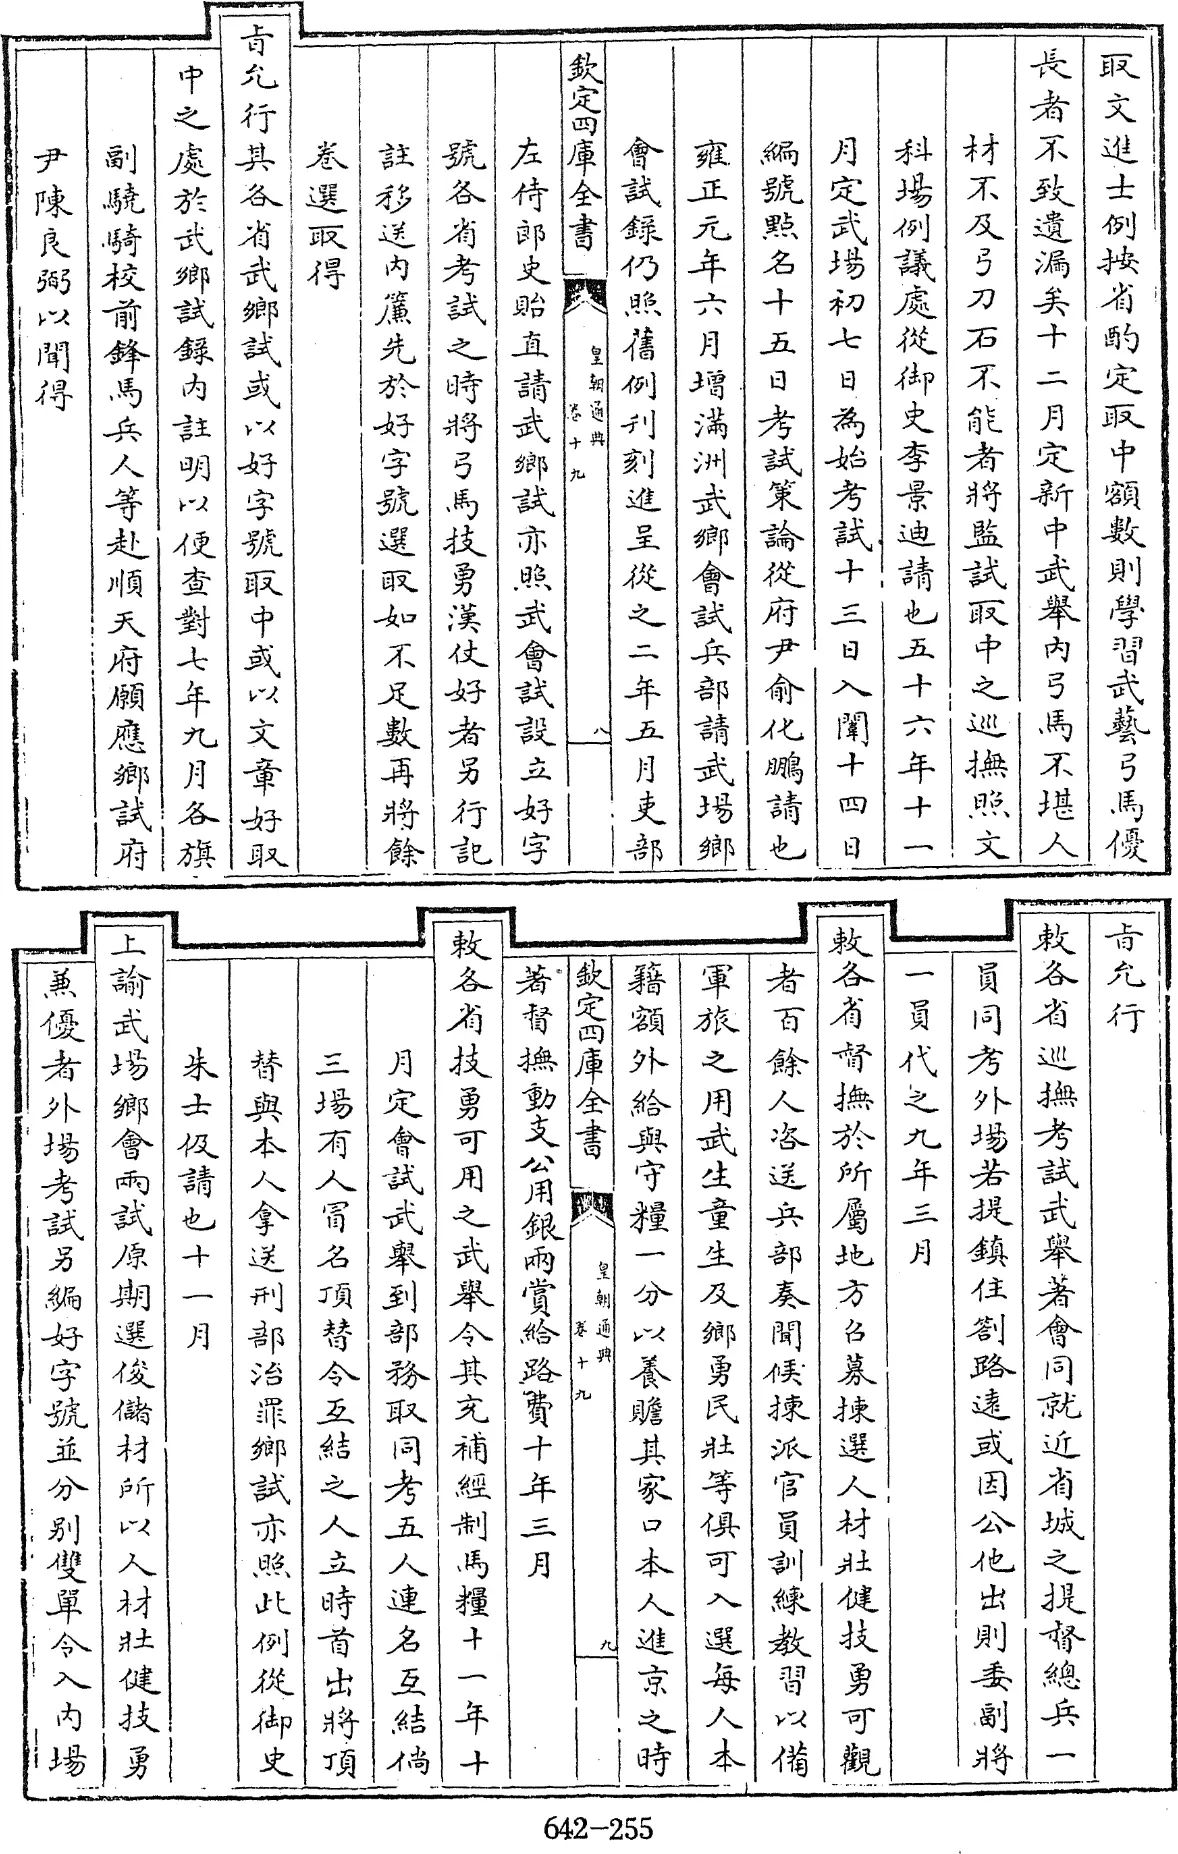 取文進士例按省酌定取中額數則學習武藝弓馬優
長者不致遺漏矣十二月定新中武舉內弓馬不堪人
材不及弓刀石不能者將監試取中之巡撫照文
科場例議處從御史李景迪請也五十六年十一
月定武場初七日為始考試十三日入闈十四日
編號點名十五日考試策論從府尹俞化鵬請也
雍正元年六月增滿洲武鄉會試兵部請武場鄉
會試錄仍照舊例刊刻進呈從之二年五月吏部
欽定四庫全書
皇朝通典
卷十九
八
左侍郎史貽直請武鄉試亦照武會試設立好字
號各省考試之時將弓馬技勇漢仗好者另行記
註移送內簾先於好字號選取如不足數再將餘
卷選取得
旨允行其各省武鄉試或以好字號取中或以文章好取
中之處於武鄉試錄內註明以便查對七年九月各旗
副驍騎校前鋒馬兵人等赴順天府願應鄉試府
尹陳良弼以聞得
旨允行
敕各省巡撫考試武舉著會同就近省城之提督總兵一
員同考外場若提鎮住劄路遠或因公他出則委副將
一員代之九年三月
敕各省督撫於所屬地方召募揀選人材壯健技勇可觀
者百餘人咨送兵部奏聞候揀派官員訓練教習以備
軍旅之用武生童生及鄉勇民壯等俱可入選每人本
籍額外給與守糧一分以養贍其家口本人進京之時
欽定四庫全書
皇朝通典
卷十九
九
著督撫動支公用銀兩賞給路費十年三月
敕各省技勇可用之武舉令其充補經制馬糧十一年十
月定會試武舉到部務取同考五人連名互結倘
三場有人冒名頂替令互結之人立時首出將頂
替與本人拿送刑部治罪鄉試亦照此例從御史
朱士伋請也十一月
上諭武場鄉會兩試原期選俊儲材所以人材壯健技勇
兼優者外場考試另編好字號並分別雙單令入內場
642-255